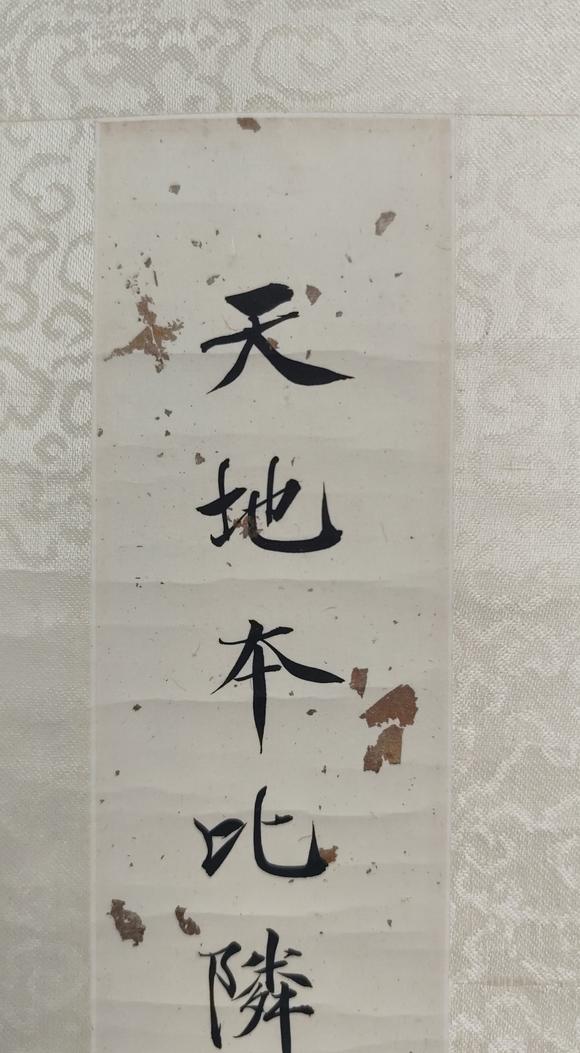 天地本比隣